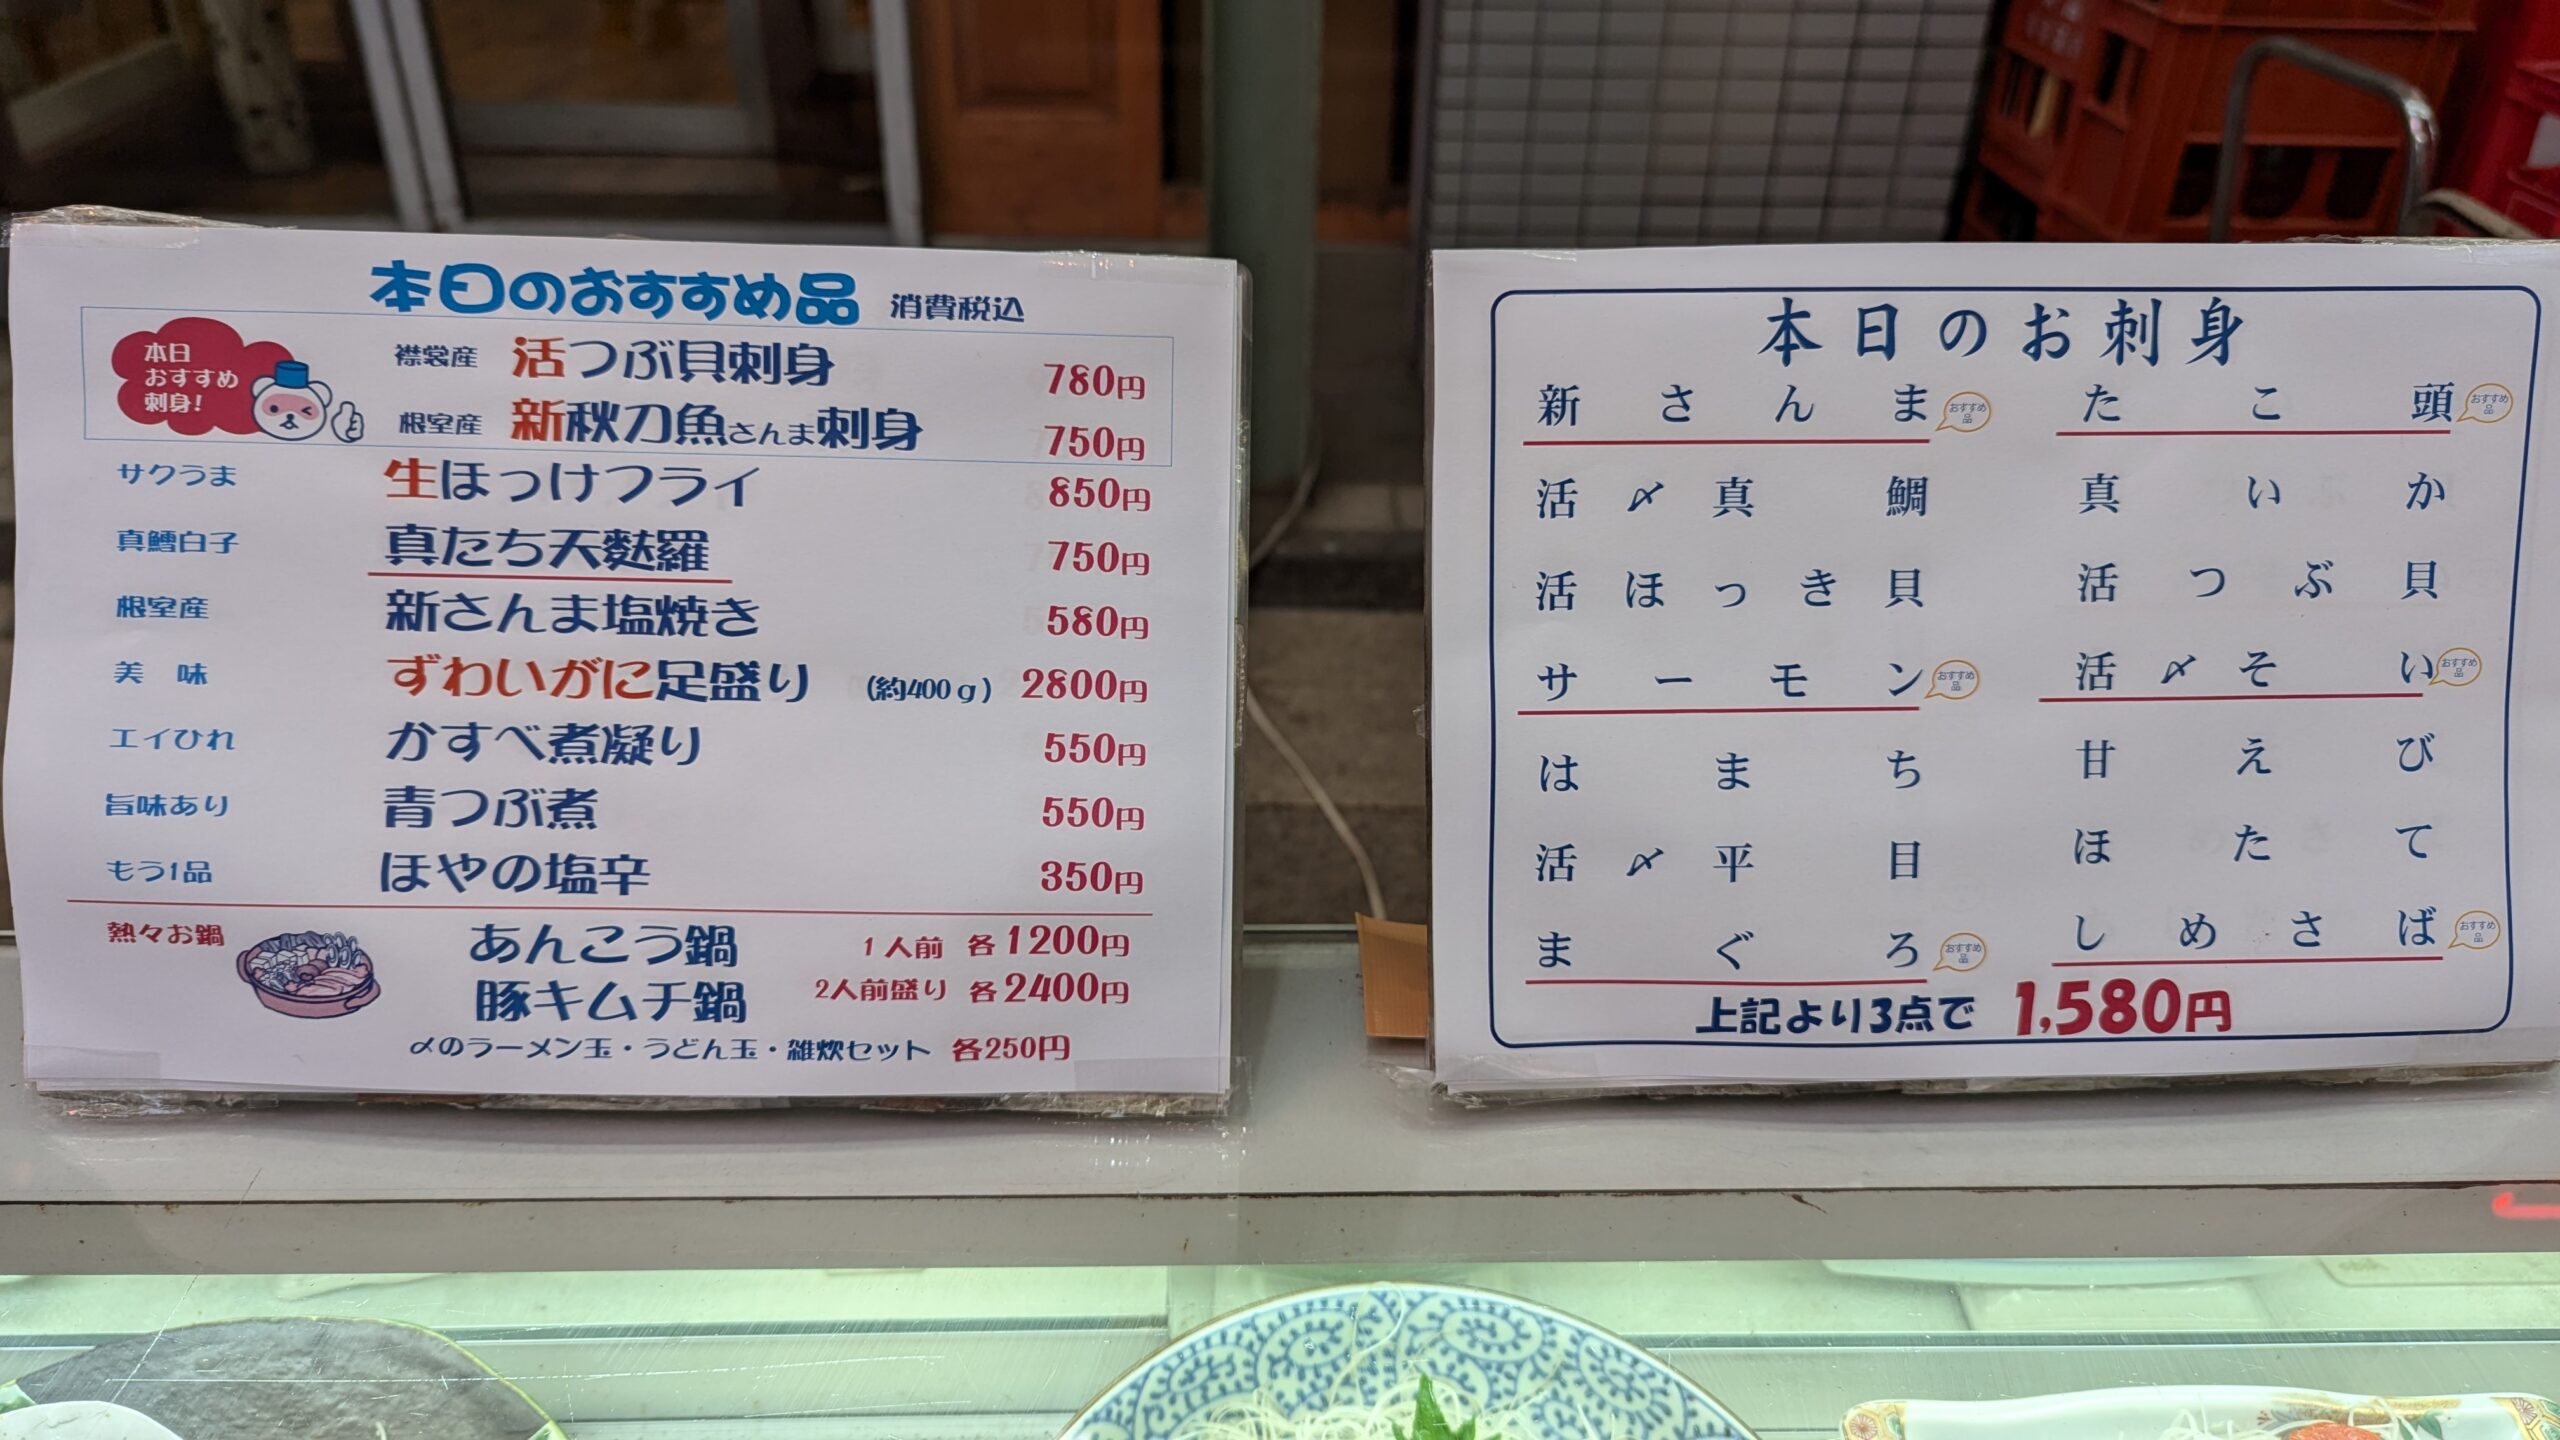 本日のおすすめ品 消費税込
本日
おすすめ
刺身!
襟裳産 活つぶ貝刺身 780円
根室産 新秋刀魚さんま刺身 750円
サクうま 生ほっけフライ 850円
真鱈白子 真たち天麩羅 750円
根室産 新さんま塩焼き 580円
美 味 ずわいがに足盛り (約400g) 2800円
エイひれ かすべ煮凝り 550円
旨味あり 青つぶ煮 550円
もう1品 ほやの塩辛 350円
熱々お鍋 あんこう鍋 1人前 各1200円
豚キムチ鍋 2人前盛り 各2400円
〆のラーメン玉・うどん玉・雑炊セット 各250円
本日のお刺身
新さんま おすすめ品 たこ頭 おすすめ品
活〆真鯛 真いか
活ほっき貝 活つぶ貝
サーモン おすすめ品 活〆そい おすすめ品
はまち 甘えび
活〆平目 ほたて
まぐろ おすすめ品 しめさば おすすめ品
上記より3点で 1,580円